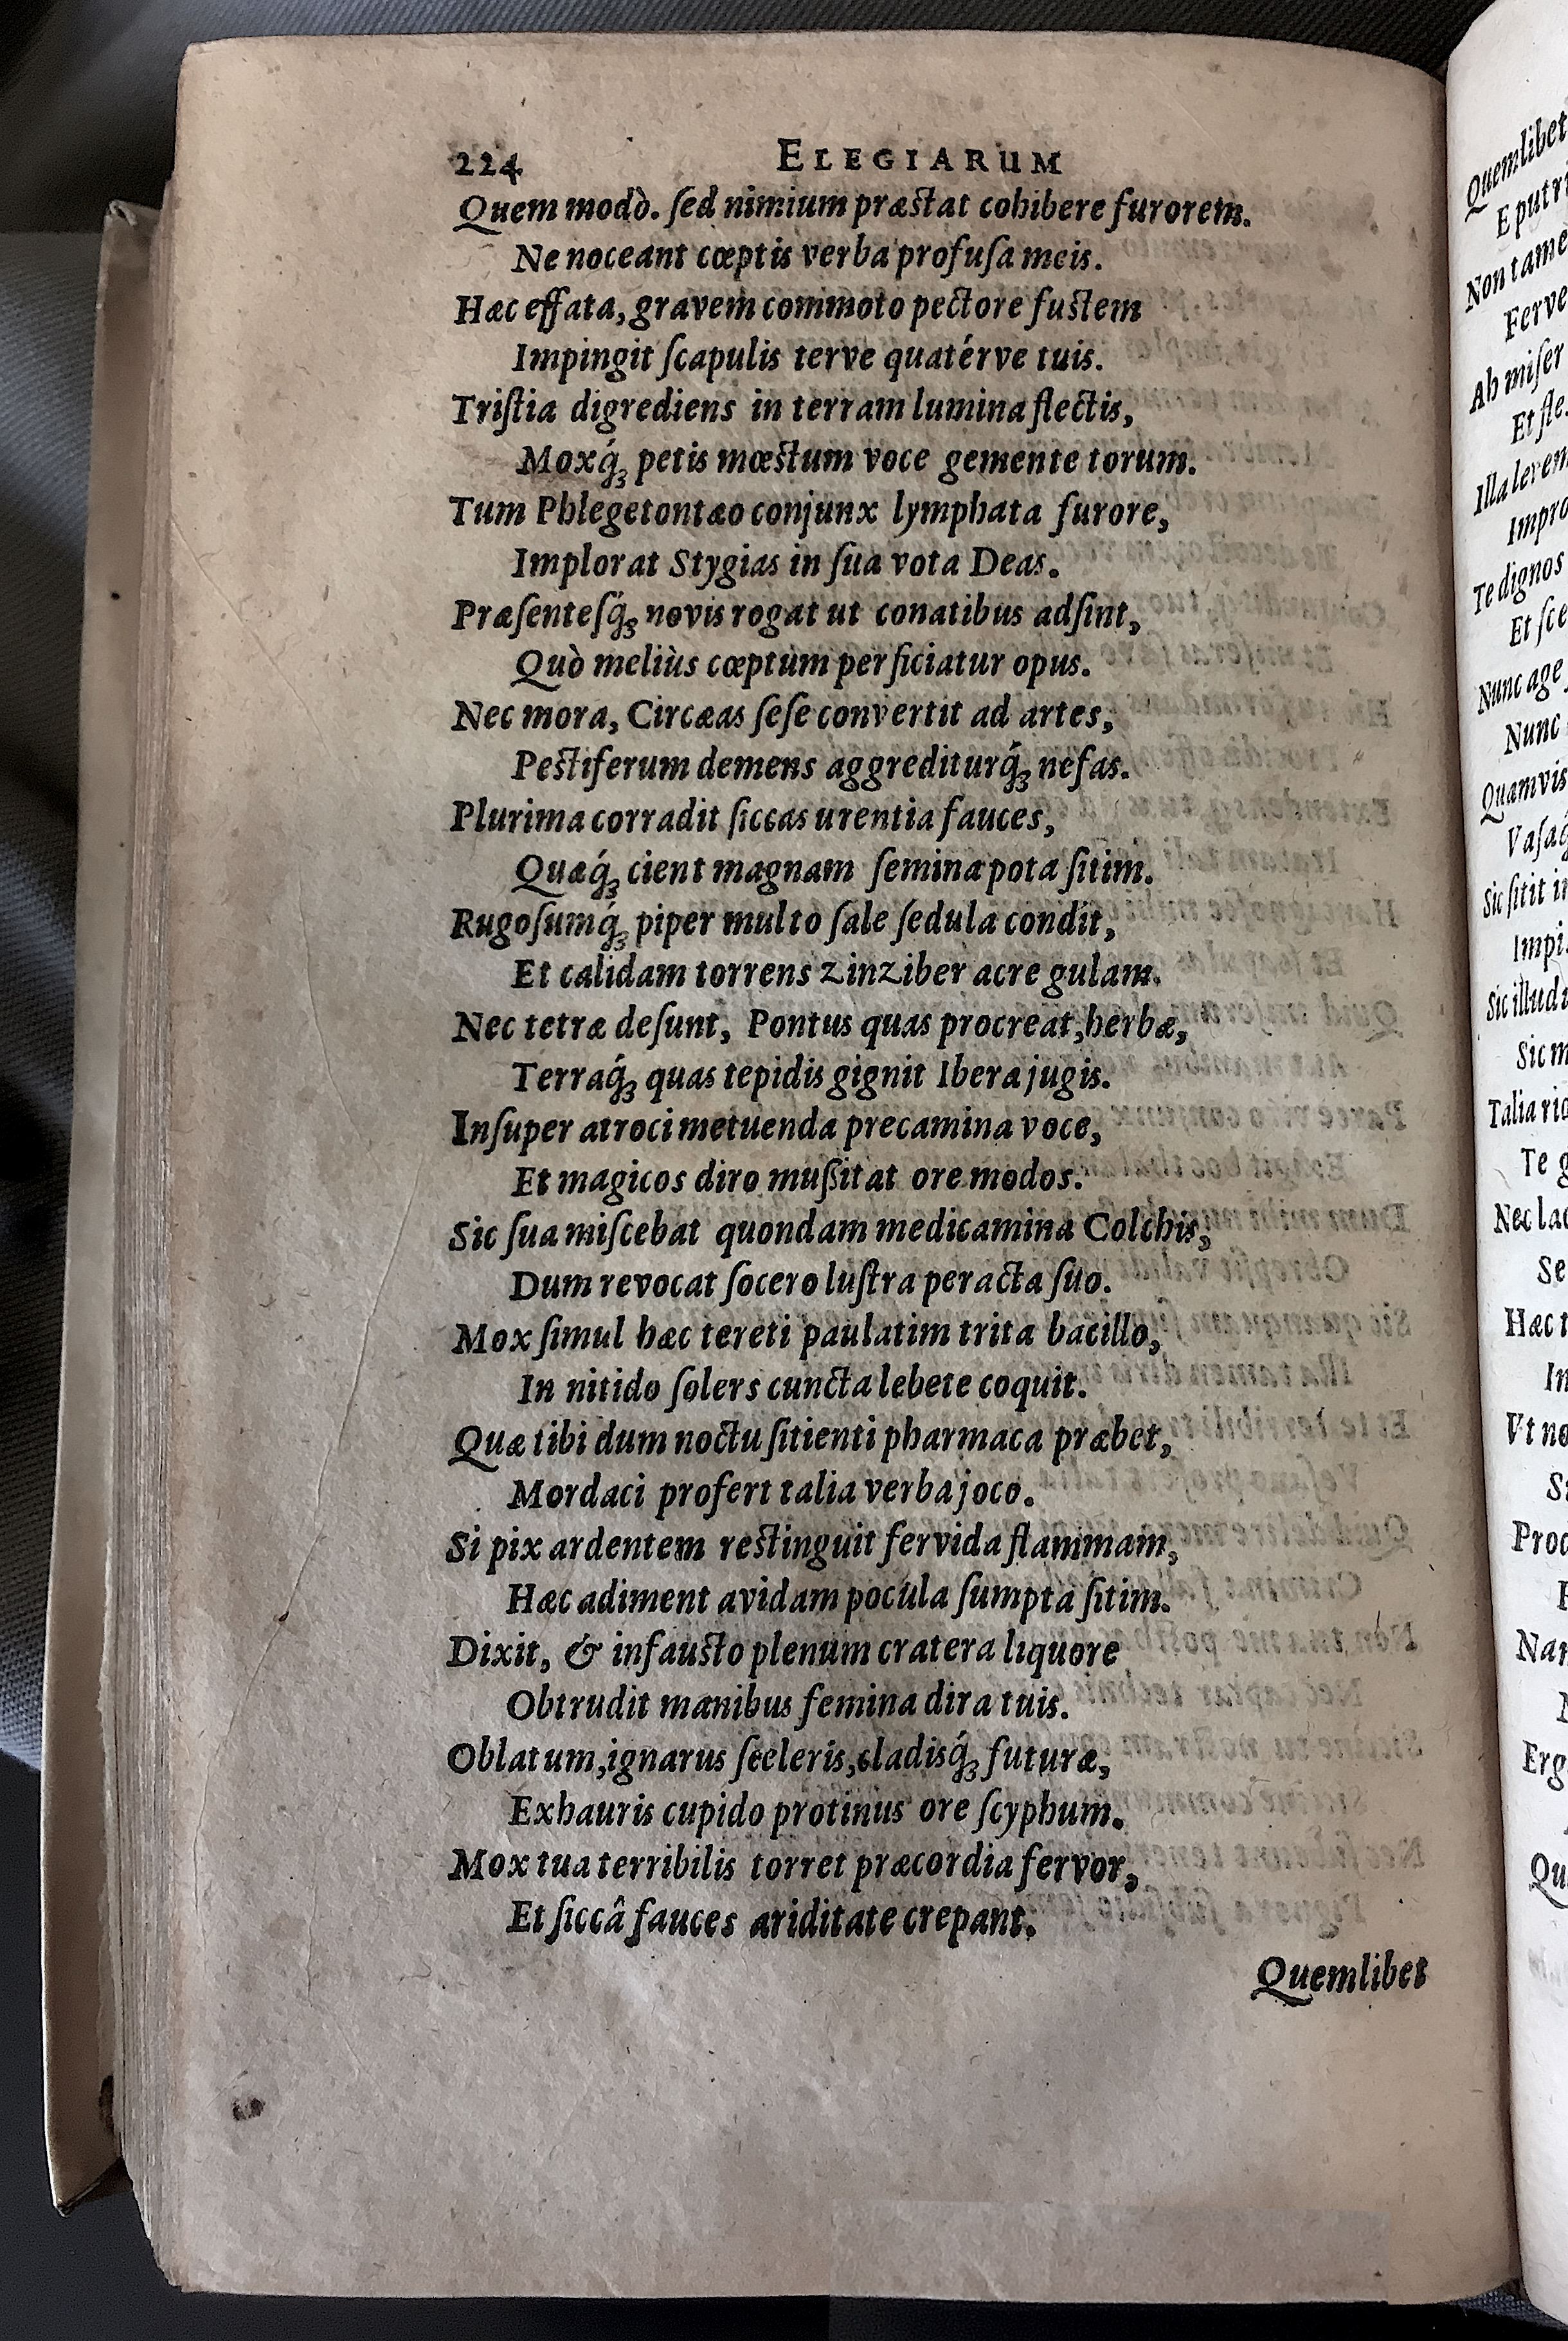 224 ELEGIARUM
Quem modò. sed nimium præstat cohibere furorem.
Ne noceant cœptis verba profusa meis.
Hæc effata, gravem commoto pectore fustem
Impingit scapulis terve quatérve tuis.
Tristia digrediens in terram lumina flectis,
Moxq́ꝫ petis mœstum voce gemente torum.
Tum Phlegetontæo conjunx lymphata furore,
Implorat Stygias in sua vota Deas.
Præsentesq́ꝫ novis rogat ut conatibus adsint,
Quò meliùs cœptum perficiatur opus.
Nec mora, Circæas sese convertit ad artes,
Pestiferum demens aggrediturq́ꝫ nefas.
Plurima corradit siccas urentia fauces,
Quæq́ꝫ cient magnam semina pota sitim.
Rugosumq́ꝫ piper multo sale sedula condit,
Et calidam torrens zinziber acre gulam.
Nec tetræ desunt, Pontus quas procreat, herbæ,
Terraq́ꝫ quas tepidis gignit Ibera jugis.
Insuper atroci metuenda precamina voce,
Et magicos diro mußitat ore modos.
Sic sua miscebat quondam medicamina Colchis,
Dum revocat socero lustra peracta suo.
Mox simul hæc tereti paulatim trita bacillo,
In nitido solers cuncta lebete coquit.
Quæ tibi dum noctu sitienti pharmaca præbet,
Mordaci profert talia verba joco.
Si pix ardentem restinguit fervida flammam,
Hæc adiment avidam pocula sumpta sitim.
Dixit, & infausto plenum cratera liquore
Obtrudit manibus femina dira tuis.
Oblatum, ignarus sceleris, cladisq́ꝫ futuræ,
Exhauris cupido protinus ore scyphum.
Mox tua terribilis torret præcordia fervor,
Et siccâ fauces ariditate crepant.
Quemlibet
Quemlibet
E putri
Non tame
Ferve
Ah miser
Et fle
Illa lerem
Impro
Te dignos
Et sce
Nunc age
Nunc
Quamvis
Vasaq́
Sic sitit in
Impi
Sic illud
Sic m
Talia ric
Te g
Nec lac
Se
Hæc t
In
Vt no
Proc
Nam
Erg
Qu